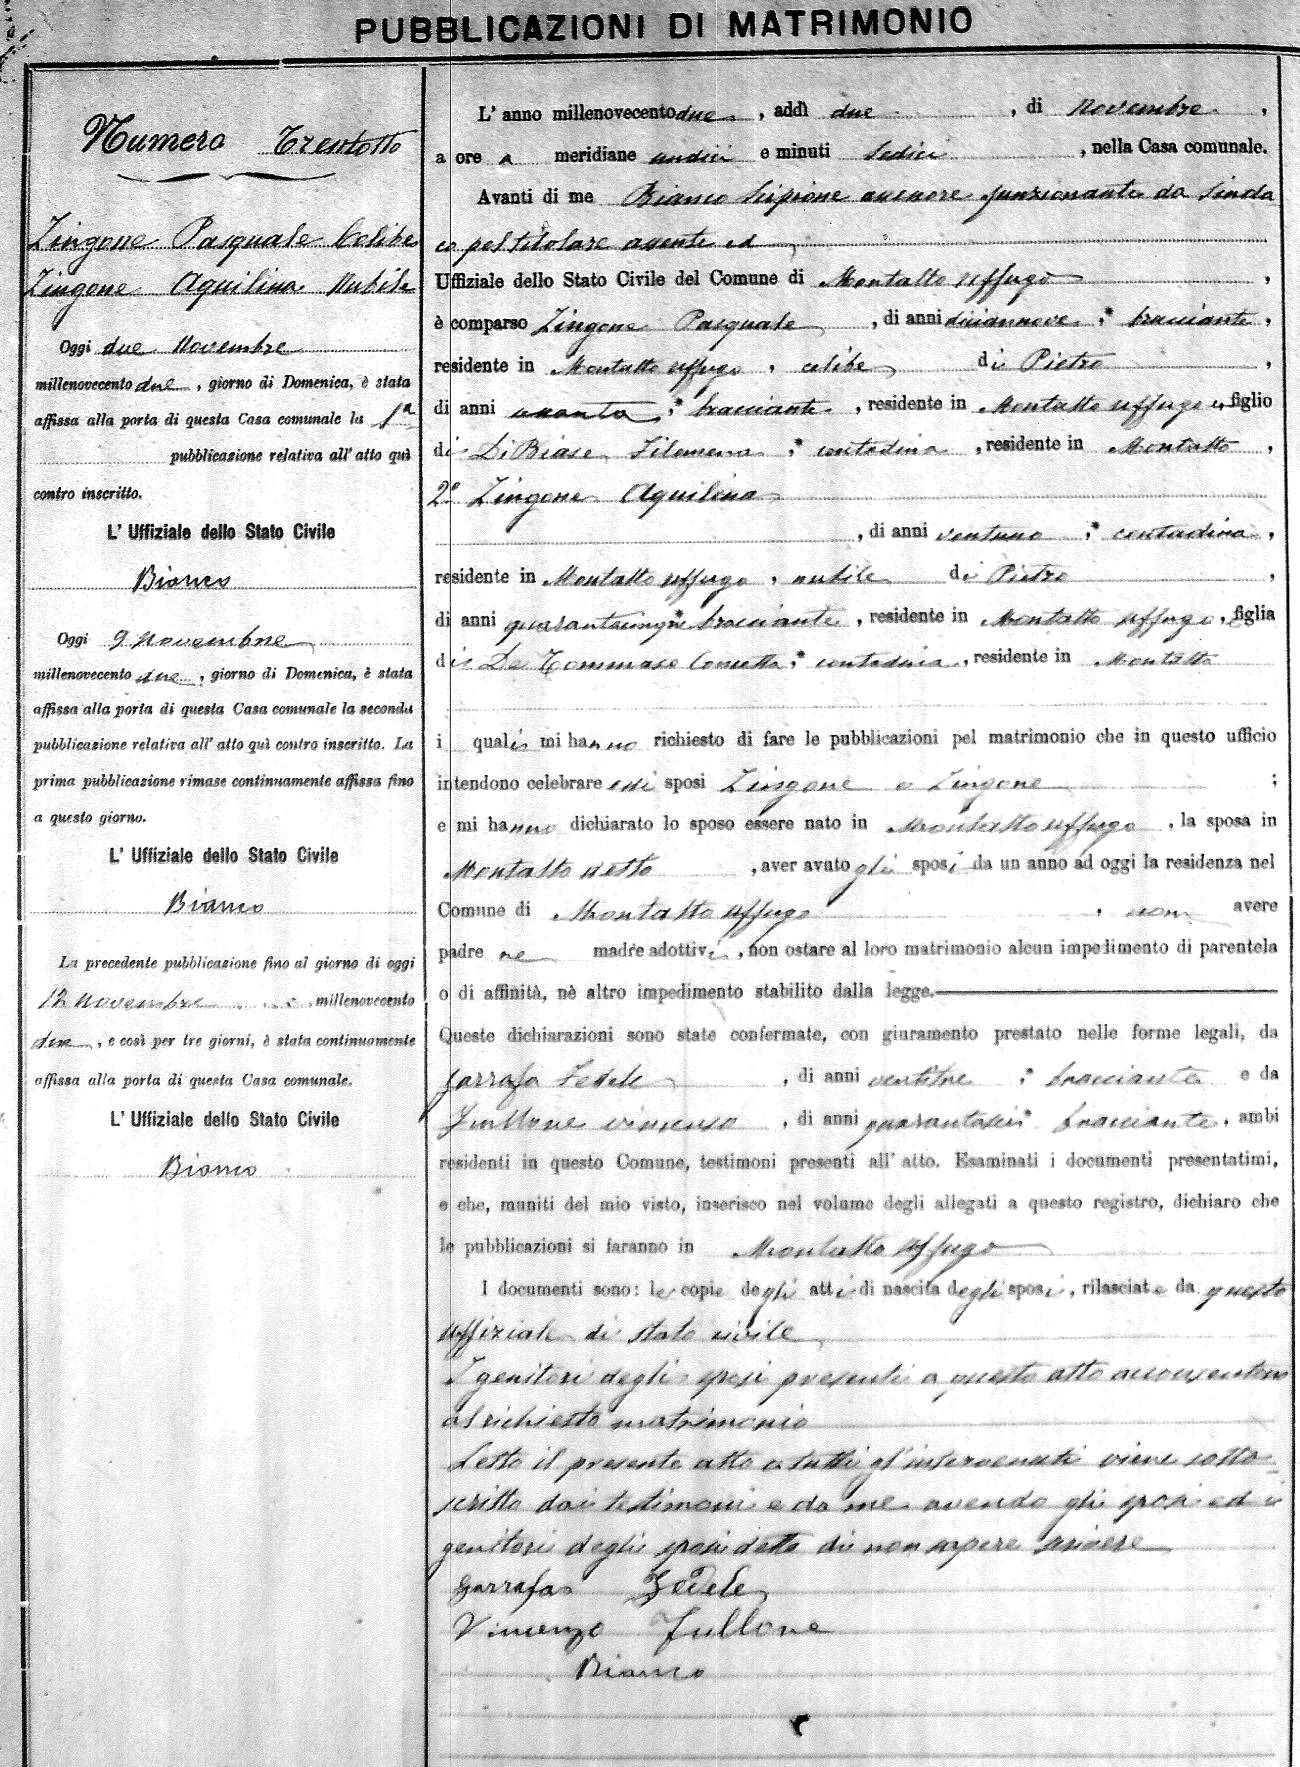 PUBBLICAZIONI DI MATRIMONIO
Numero Trentotto
Zingone Pasquale Celibe
Zingone Aquilina Nubile
Oggi due Novembre
millenovecento due, giorno di Domenica, è stata
affissa alla porta di questa Casa comunale la 1ª
pubblicazione relativa all' atto quì
contro inscritto.
L' Uffiziale dello Stato Civile
Bianco
Oggi 9 Novembre
millenovecento due, giorno di Domenica, è stata
affissa alla porta di questa Casa comunale la seconda
pubblicazione relativa all' atto quì contro inscritto. La
prima pubblicazione rimase continuamente affissa fino
a questo giorno.
L' Uffiziale dello Stato Civile
Bianco
La precedente pubblicazione fino al giorno di oggi
12 Novembre, millenovecento
due, e così per tre giorni, è stata continuamente
affissa alla porta di questa Casa comunale.
L' Uffiziale dello Stato Civile
Bianco
L' anno millenovecentodue, addì due, di Novembre,
a ore a meridiane undici e minuti Sedici, nella Casa comunale.
Avanti di me Bianco Scipione funzionante da Sinda
co pel titolare assente ed
Uffiziale dello Stato Civile del Comune di Montalto Uffugo,
è comparso Zingone Pasquale, di anni diciannove, bracciante,
residente in Montalto Uffugo, celibe di Pietro,
di anni, bracciante, residente in Montalto Uffugo, figlio
di Di Biase Filomena, contadina, residente in Montalto,
2º Zingone Aquilina
, di anni ventuno, contadina,
residente in Montalto Uffugo, nubile di Pietro,
di anni quarantacinque bracciante, residente in Montalto Uffugo, figlia
di De Tommaso Concetta, contadina, residente in Montalto
i quali mi hanno richiesto di fare le pubblicazioni pel matrimonio che in questo ufficio
intendono celebrare essi sposi Zingone e Zingone;
e mi hanno dichiarato lo sposo essere nato in Montalto Uffugo, la sposa in
Montalto detto, aver avuto gli sposi da un anno ad oggi la residenza nel
Comune di Montalto Uffugo, non avere
padre ne madre adottivi, non ostare al loro matrimonio alcun impedimento di parentela
o di affinità, nè altro impedimento stabilito dalla legge.
Queste dichiarazioni sono state confermate, con giuramento prestato nelle forme legali, da
Garrafa Fedele, di anni ventitre, bracciante e da
Fullone Vincenzo, di anni quarantasei bracciante, ambi
residenti in questo Comune, testimoni presenti all' atto. Esaminati i documenti presentatimi,
e che, muniti del mio visto, inserisco nel volume degli allegati a questo registro, dichiaro che
le pubblicazioni si faranno in Montalto Uffugo
I documenti sono: le copie degli atti di nascita degli sposi, rilasciate da questo
uffiziale di stato civile
I genitori degli sposi presenti a questo atto acconsentono
al richiesto matrimonio
Letto il presente atto a tutti gl'intervenuti viene sotto=
scritto dai testimoni e da me avendo gli sposi ed i
genitori degli sposi detto di non sapere scrivere
Garrafa Fedele
Vincenzo Fullone
Bianco